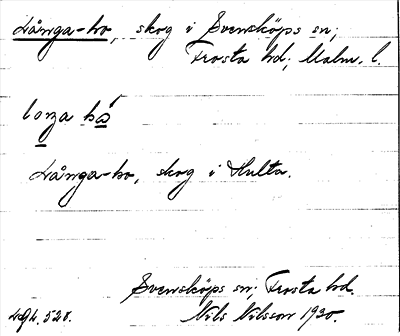 Långa-ho, skog i Svensköps sn;
Frosta hd; Malm. l.
långa-ho, skog i Hulta.
Svensköps sn; Frosta hd.
Nils Nilsson 1920.